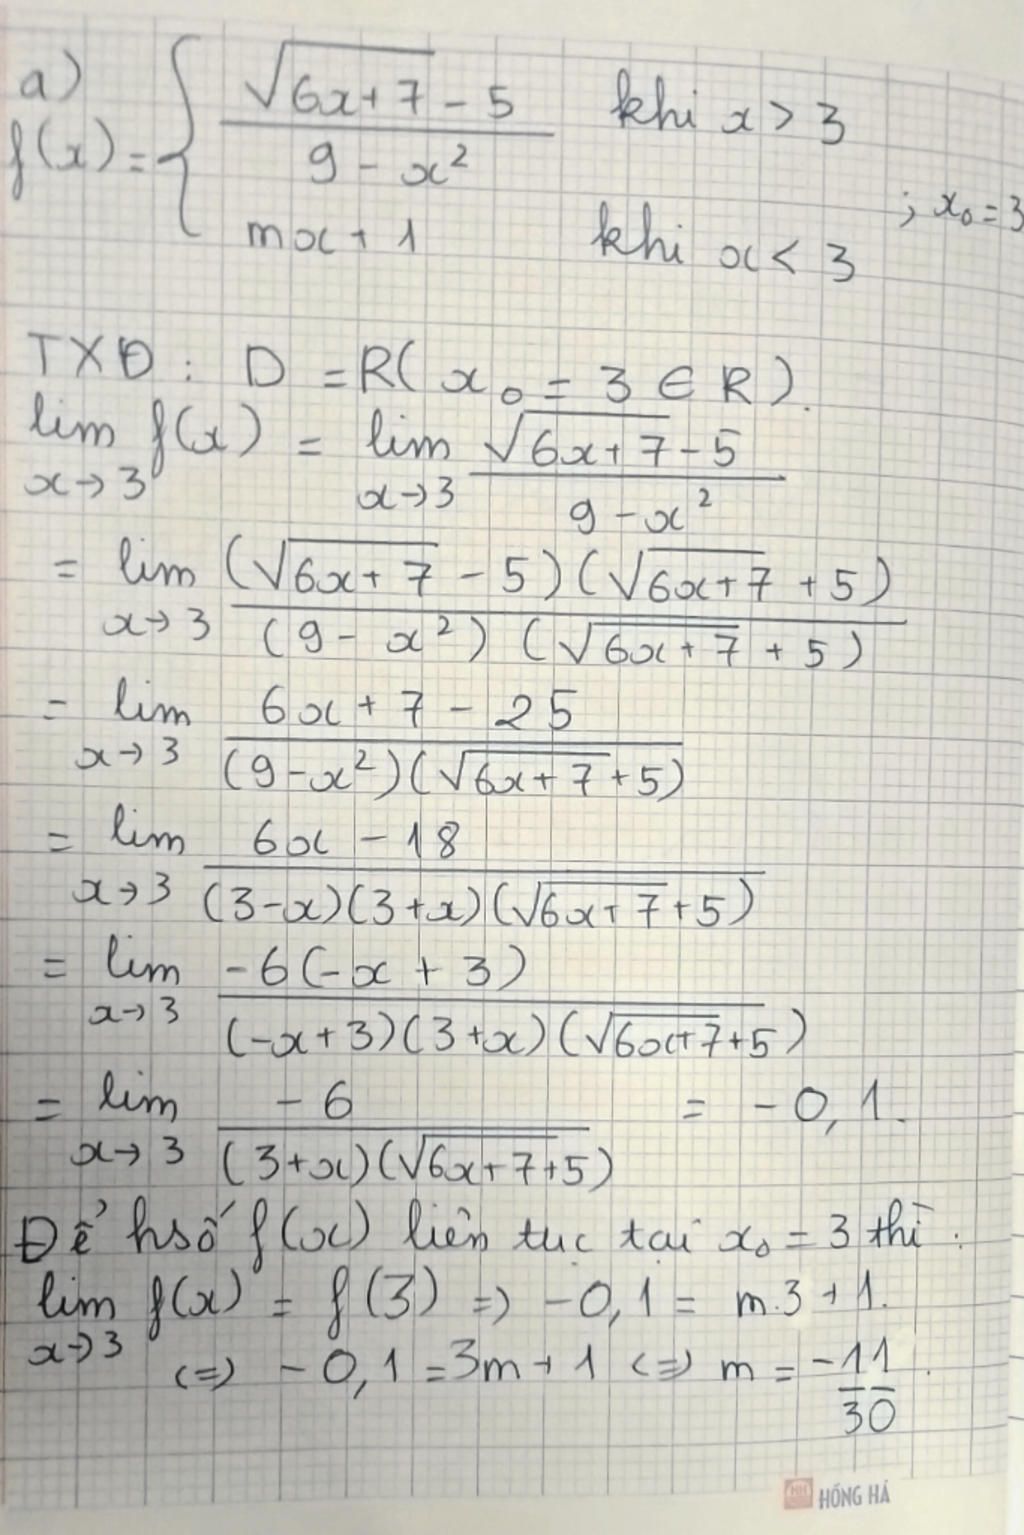 a)
f(x) = { (√(6x+7) - 5)/(9 - x²) khi x > 3
mx + 1 khi x < 3 ; x₀ = 3
TXĐ : D = R( x₀ = 3 ∈ R).
lim x→3 f(x) = lim x→3 (√(6x+7) - 5)/(9 - x²)
= lim x→3 ((√(6x+7) - 5)(√(6x+7) + 5))/((9 - x²)(√(6x+7) + 5))
= lim x→3 (6x + 7 - 25)/((9 - x²)(√(6x+7) + 5))
= lim x→3 (6x - 18)/((3-x)(3+x)(√(6x+7) + 5))
= lim x→3 (-6(-x + 3))/((-x+3)(3+x)(√(6x+7) + 5))
= lim x→3 (-6)/((3+x)(√(6x+7) + 5)) = -0,1.
Để hsố f(x) liên tục tại x₀ = 3 thì :
lim x→3 f(x) = f(3) => -0,1 = m.3 + 1.
<=> -0,1 = 3m + 1 <=> m = -11/30.
HỒNG HÀ